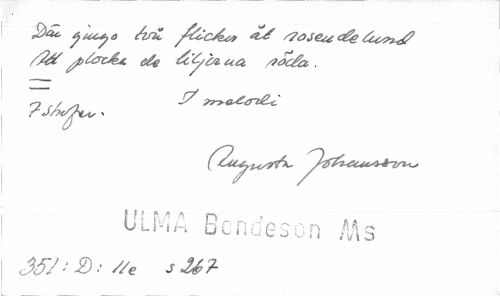 Där gingo två flickor åt rosendelund
Att plocka de liljorna röda.
7 strofer. I melodi
Augusta Johansson
ULMA Bondeson Ms
351: D: 11e s 267